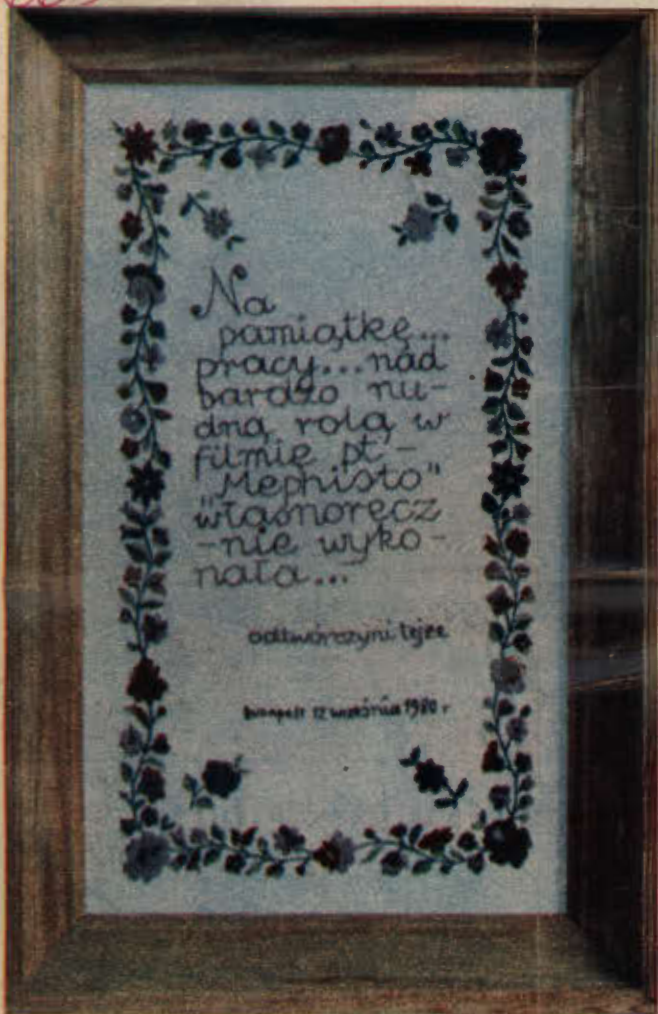 Na
pamiątkę...
pracy...nad
bardzo nu-
dną rolą w
filmie pt-
"Mephisto"
własnoręcz
-nie wyko-
nała...
odtwórczyni tejże
Budapeszt 12 września 1980 r